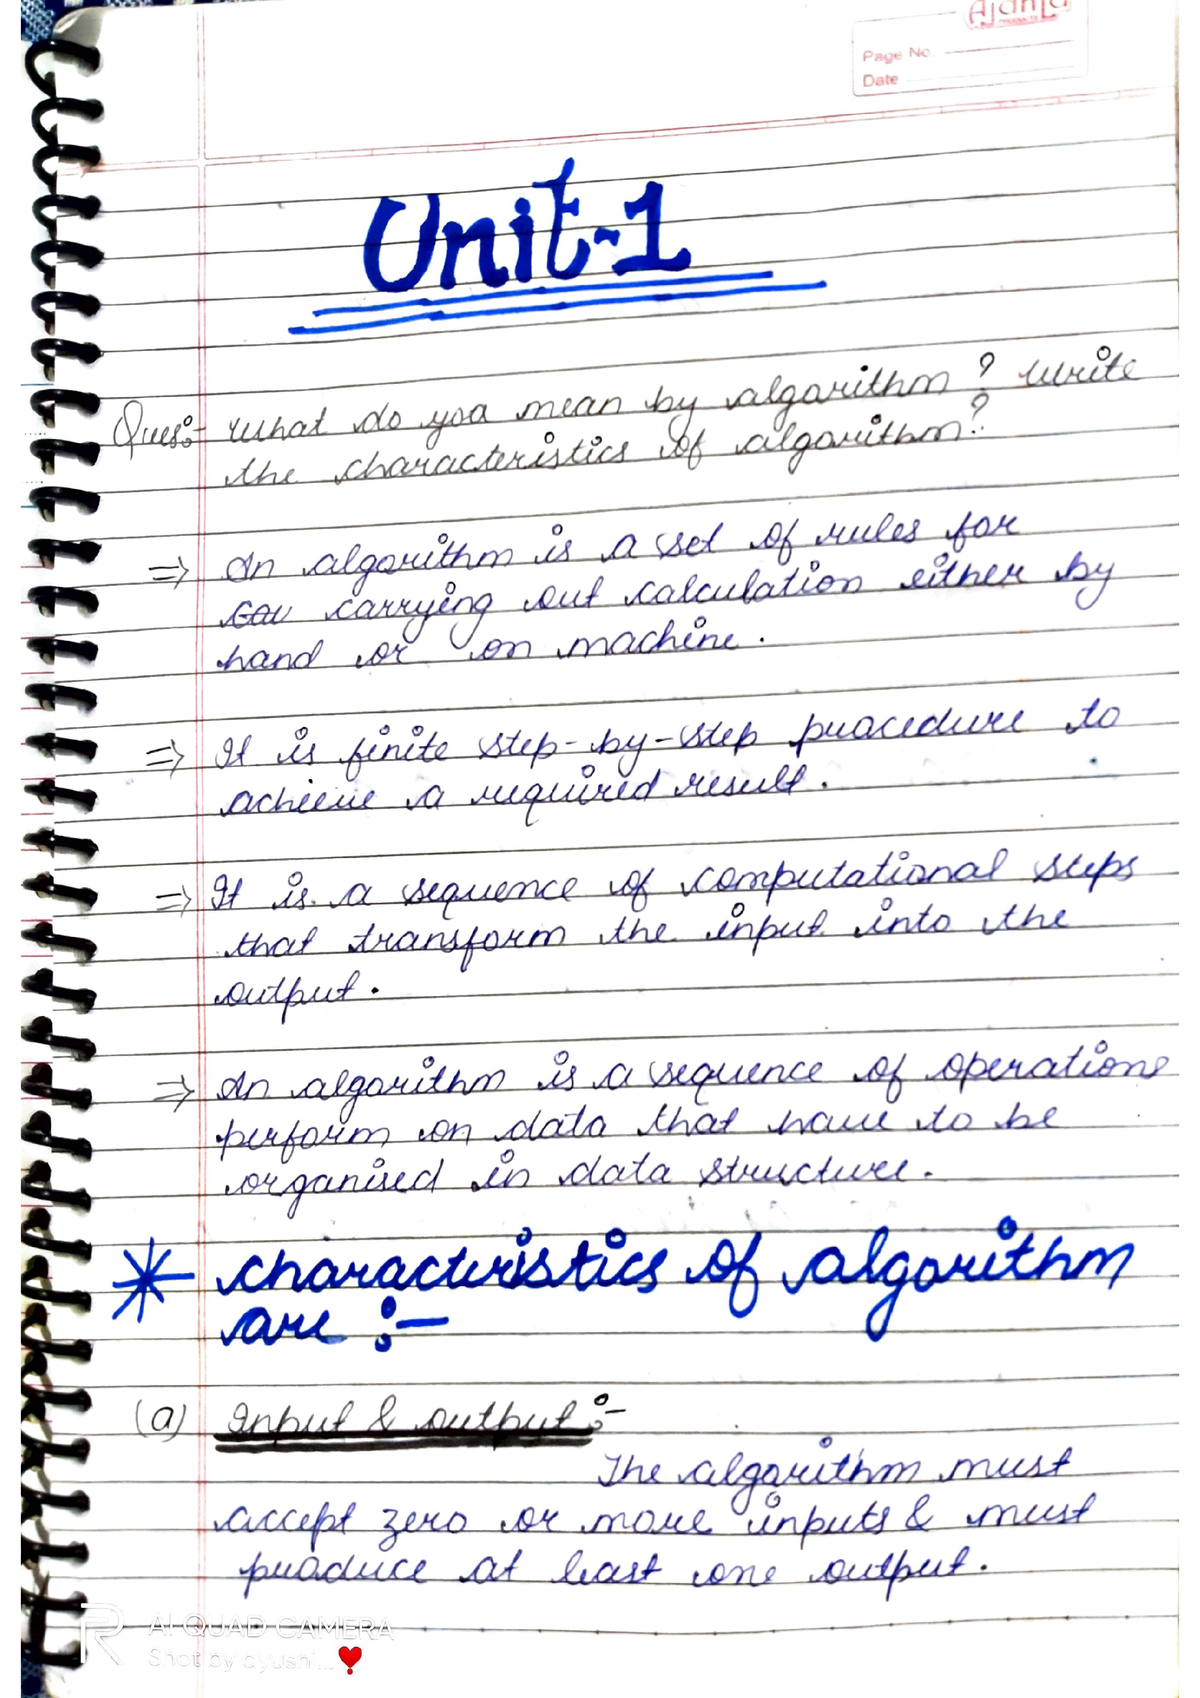 Ajanta
Page No.
Date
Unit-1
Ques:- What do you mean by algorithm? Write
the characteristics of algorithm?
=> An algorithm is a set of rules for
carrying out calculation either by
hand or on machine.
=> It is finite step-by-step procedure to
achieve a required result.
=> It is a sequence of computational steps
that transform the input into the
output.
=> An algorithm is a sequence of operations
perform on data that have to be
organised in data structure.
* characteristics of algorithm
are :-
(a) Input & output :-
The algorithm must
accept zero or more inputs & must
produce at least one output.
AI QUAD CAMERA
Shot by ayushi...❤